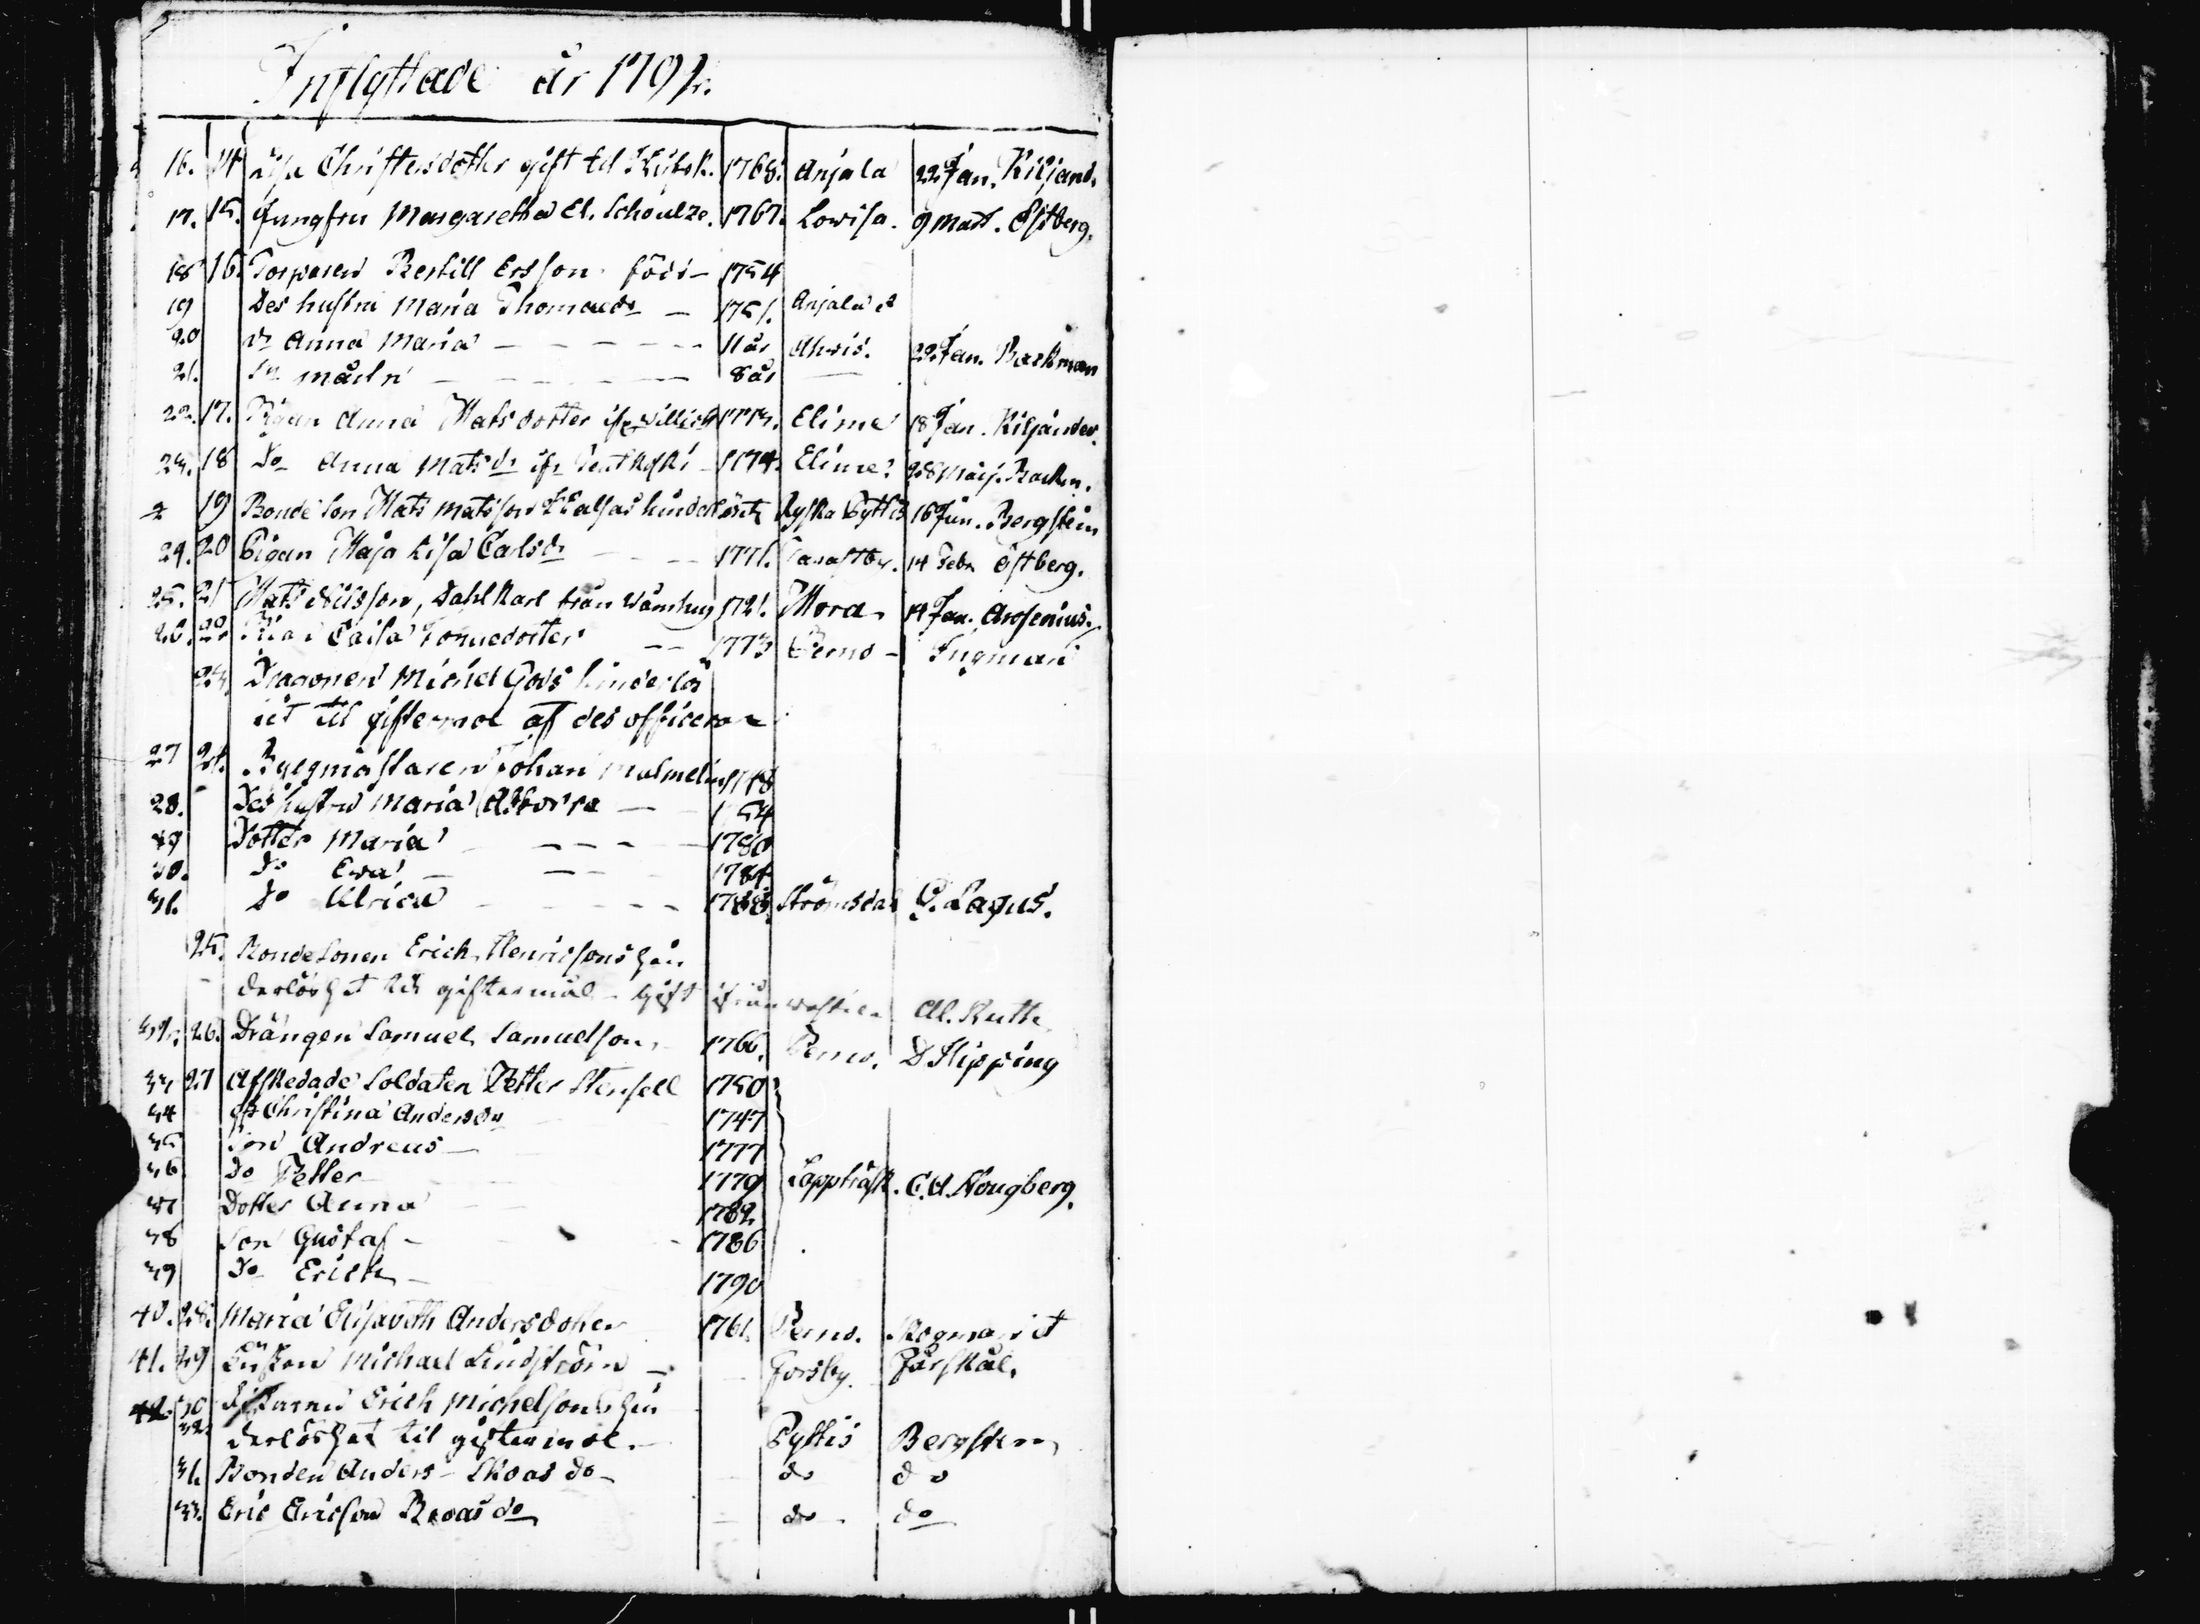 Inflyttade år 1791.
16. 14 Lisa Christersdotter gift til Kijtsk. 1768. Anjala 22 Jan. Kiljand.
17. 15. Jungfru Margaretha El. Schoulze. 1767. Lowisa. 9 Mart. Östberg.
18 16. Torparen Bertill Ersson född 1754
19 Des hustru Maria Thomasdr 1751. Anjala
20 dr Anna Maria 11 år 22 Jan. Backman
21. 8 år
22. 17. Pigan Anna Matsdotter 1773. Elime 18 Jan. Kiljander.
23. 18 Do Anna Matsdr 1774. Elime 28 Maij. Backm.
19 Bonde Son Mats Matsson hinderlöshet Ryska Pyttis 16 Jun. Bergsten
24. 20 Pigan Maja Lisa Carlsdr 1771. 14 Febr Östberg.
25. 21 Mats Nilsson, Dahlkarl från Våmhus 1721. Mora 14 Jan. Arosenius.
26. 22 Pigan Caisa 1773 Perno Ingman
23. Dragonen Michel Gods hinderlös
het til giftermol af des officerare
27 24. Byggmästaren Johan Malmelin 1748
28. Des hustru Maria 1754
29 Dotter Maria 1780
30. Do Ewa 1784
31. Do Ulrica 1788. Strömsdal G. Lagus.
25. Bondesonen Erich Henricsons hin
derlöshet til giftermål - Gift ifrån Al. Ruth
32. 26. Drängen Samuel Samuelson, 1766. Perno. D Slipping
33 27 Afskedade Soldaten Petter Stensell 1750
34 Christina Andersdr 1747
35 Son Andreas 1777
36 Do Petter 1779 Lappträsk. C. A. Hougberg.
37 Dotter Anna 1782
38 Son Gustaf 1786
39 Do Erich 1790
40. 28. Maria Elisabeth Andersdotter 1761. Perno.
41. 29 Michael Lindström Forsby. Forskål.
42. 30 Erich Michelsons hin
32 derlöshet til giftermol. Pyttis Bergsten
31. Bonden Anders Skoas do do do
33. Eric Ericson do do do